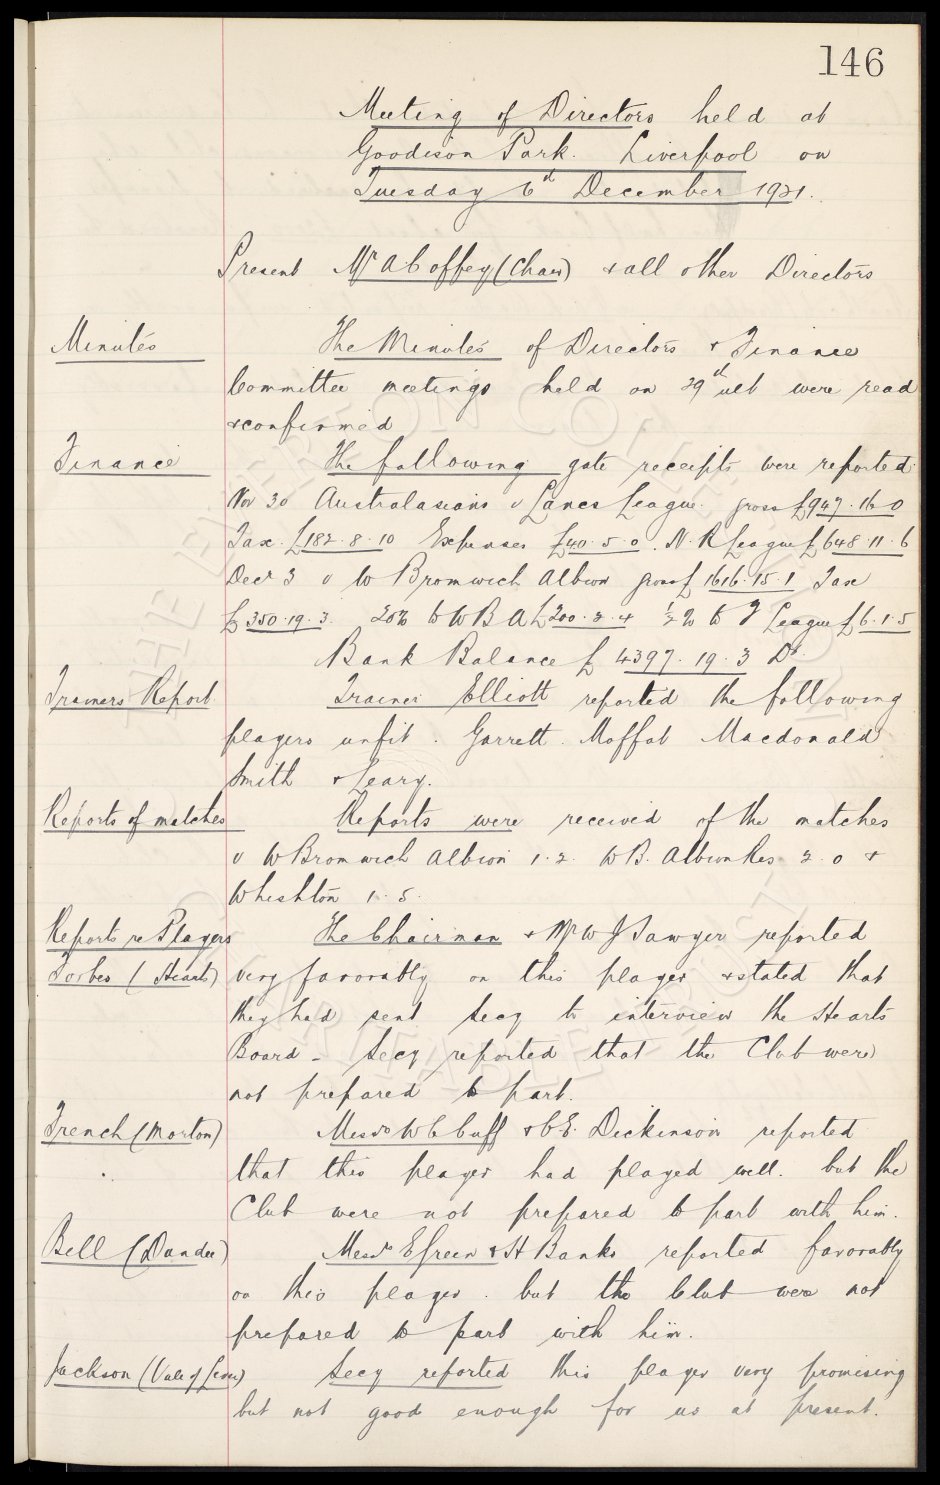 146
Meeting of Directors held at
Goodison Park. Liverpool on
Tuesday 6th December 1921.
Present Mr A Coffey (Chair) & all other Directors
Minutes The Minutes of Directors & Finance
Committee meetings held on 29th ult were read
& confirmed
Finance The following gate receipts were reported
Nov 30 Australasians v Lancs League. gross £947.16.0
Tax. £182.8.10 Expenses £40.5.0. N. R League £648.11.6
Decr 3 v W Bromwich Albion gross £1616.15.1 Tax
£350.19.3. 20% to W B A £200.2.4 ½% to F League £6.1.5
Bank Balance £4397.19.3 Dr.
Trainers Report Trainer Elliott reported the following
players unfit. Garrett. Moffat Macdonald
Smith & Leary.
Reports of matches Reports were received of the matches
v W Bromwich Albion 1.2. W B. Albion Res 2.0 &
Whishton 1.5.
Reports re Players The Chairman & Mr W J Sawyer reported
Forbes (Hearts) very favorably on this player & stated that
they had sent Secy to interview the Hearts
Board - Secy reported that the Club were
not prepared to part.
French (Morton) Messrs W C Cuff & C E. Dickinson reported
that this player had played well. but the
Club were not prepared to part with him.
Bell (Dundee) Messrs E Green & H Banks reported favorably
on this player. but the Club were not
prepared to part with him.
Jackson (Vale of Leven) Secy reported this player very promising
but not good enough for us at present.